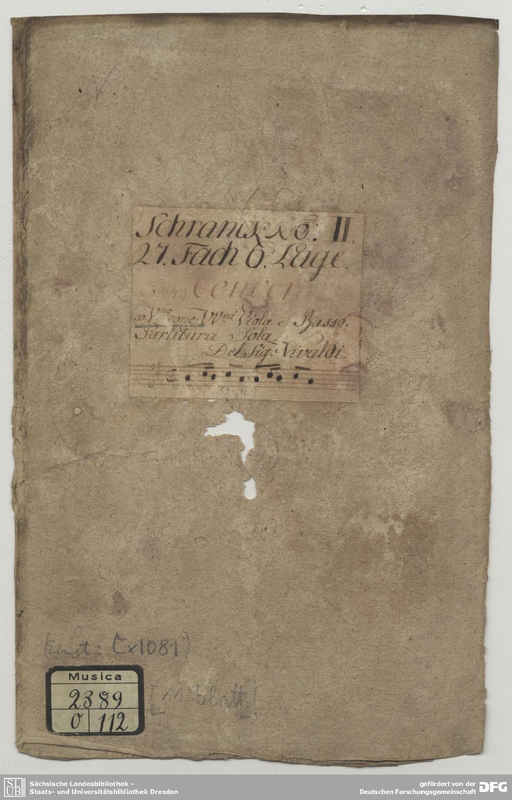 Schranck No: II.
27. Fach 6. Lage.
Concer
co VVni Viola e Basso.
Partitura Sola
Del Sig: Vivaldi
Cx1081)
Musica
2389
O 112
[11 Blatt]
Sächsische Landesbibliothek –
Staats- und Universitätsbibliothek Dresden
gefördert von der
Deutschen Forschungsgemeinschaft
DFG